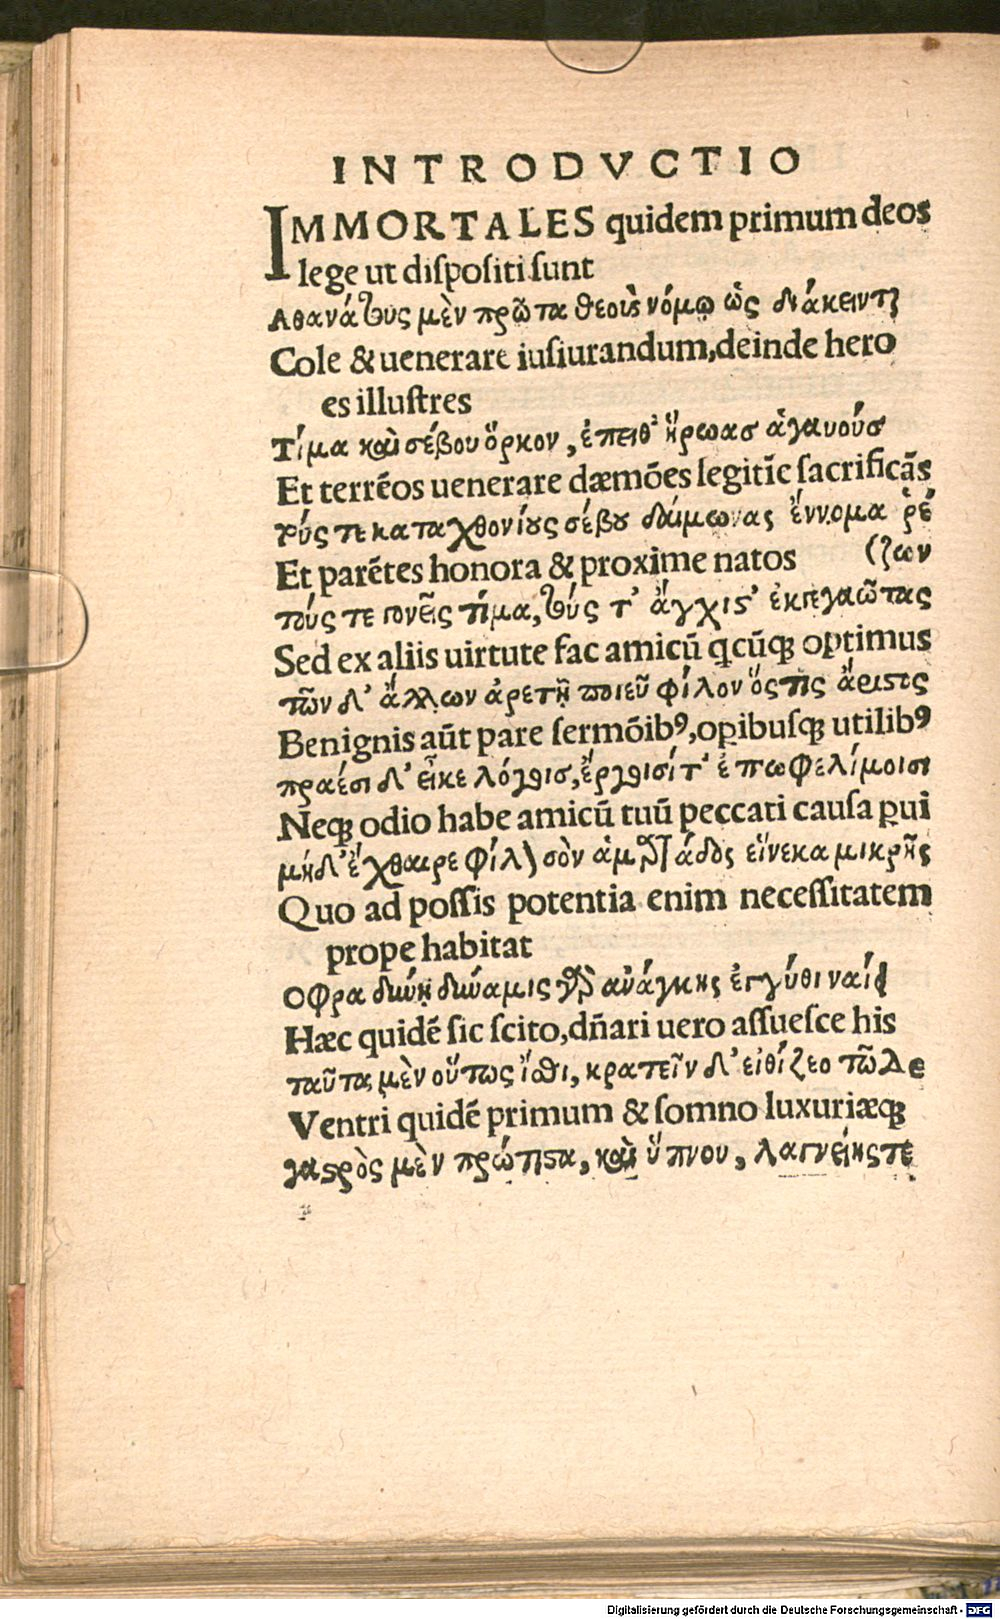 INTRODVCTIO
IMMORTALES quidem primum deos
lege ut dispositi sunt
Αθανάτους μὲν πρῶτα θεοὺς νόμῳ ὡς διάκεινται
Cole & uenerare iusiurandum, deinde hero
es illustres
Τίμα καὶ σέβου ὅρκον, ἐπειθ' ἥρωας ἀγαυούς
Et terrẽos uenerare dæmões legitĩe sacrificãs
τούς τε καταχθονίους σέβου δαίμωνας ἔννομα ῥέ
Et parẽtes honora & proxime natos (ζων
τούς τε γονεῖς τίμα, τούς τ' ἄγχιστ' ἐκγεγαῶτας
Sed ex aliis uirtute fac amicũ qcũqꝫ optimus
τῶν δ' ἄλλων ἀρετῇ ποιεῦ φίλον ὅστις ἄριστος
Benignis aũt pare sermõibꝰ, opibusqꝫ utilibꝰ
πραέσι δ' εἶκε λόγοισ, ἔργοισί τ' ἐπωφελίμοισι
Neqꝫ odio habe amicũ tuũ peccati causa pui
μηδ' ἔχθαιρε φίλον σὸν ἁμαρτάδος εἵνεκα μικρῆς
Quo ad possis potentia enim necessitatem
prope habitat
Οφρα δύνῃ δύναμις γὰρ ἀνάγκης ἐγγύθι ναίει
Hæc quidẽ sic scito, dñari uero assuesce his
ταῦτα μὲν οὕτως ἴσθι, κρατεῖν δ' εἰθίζεο τῶνδε
Ventri quidẽ primum & somno luxuriæqꝫ
γαστρὸς μὲν πρώτιστα, καὶ ὕπνου, λαγνείης τε
Digitalisierung gefördert durch die Deutsche Forschungsgemeinschaft - DFG